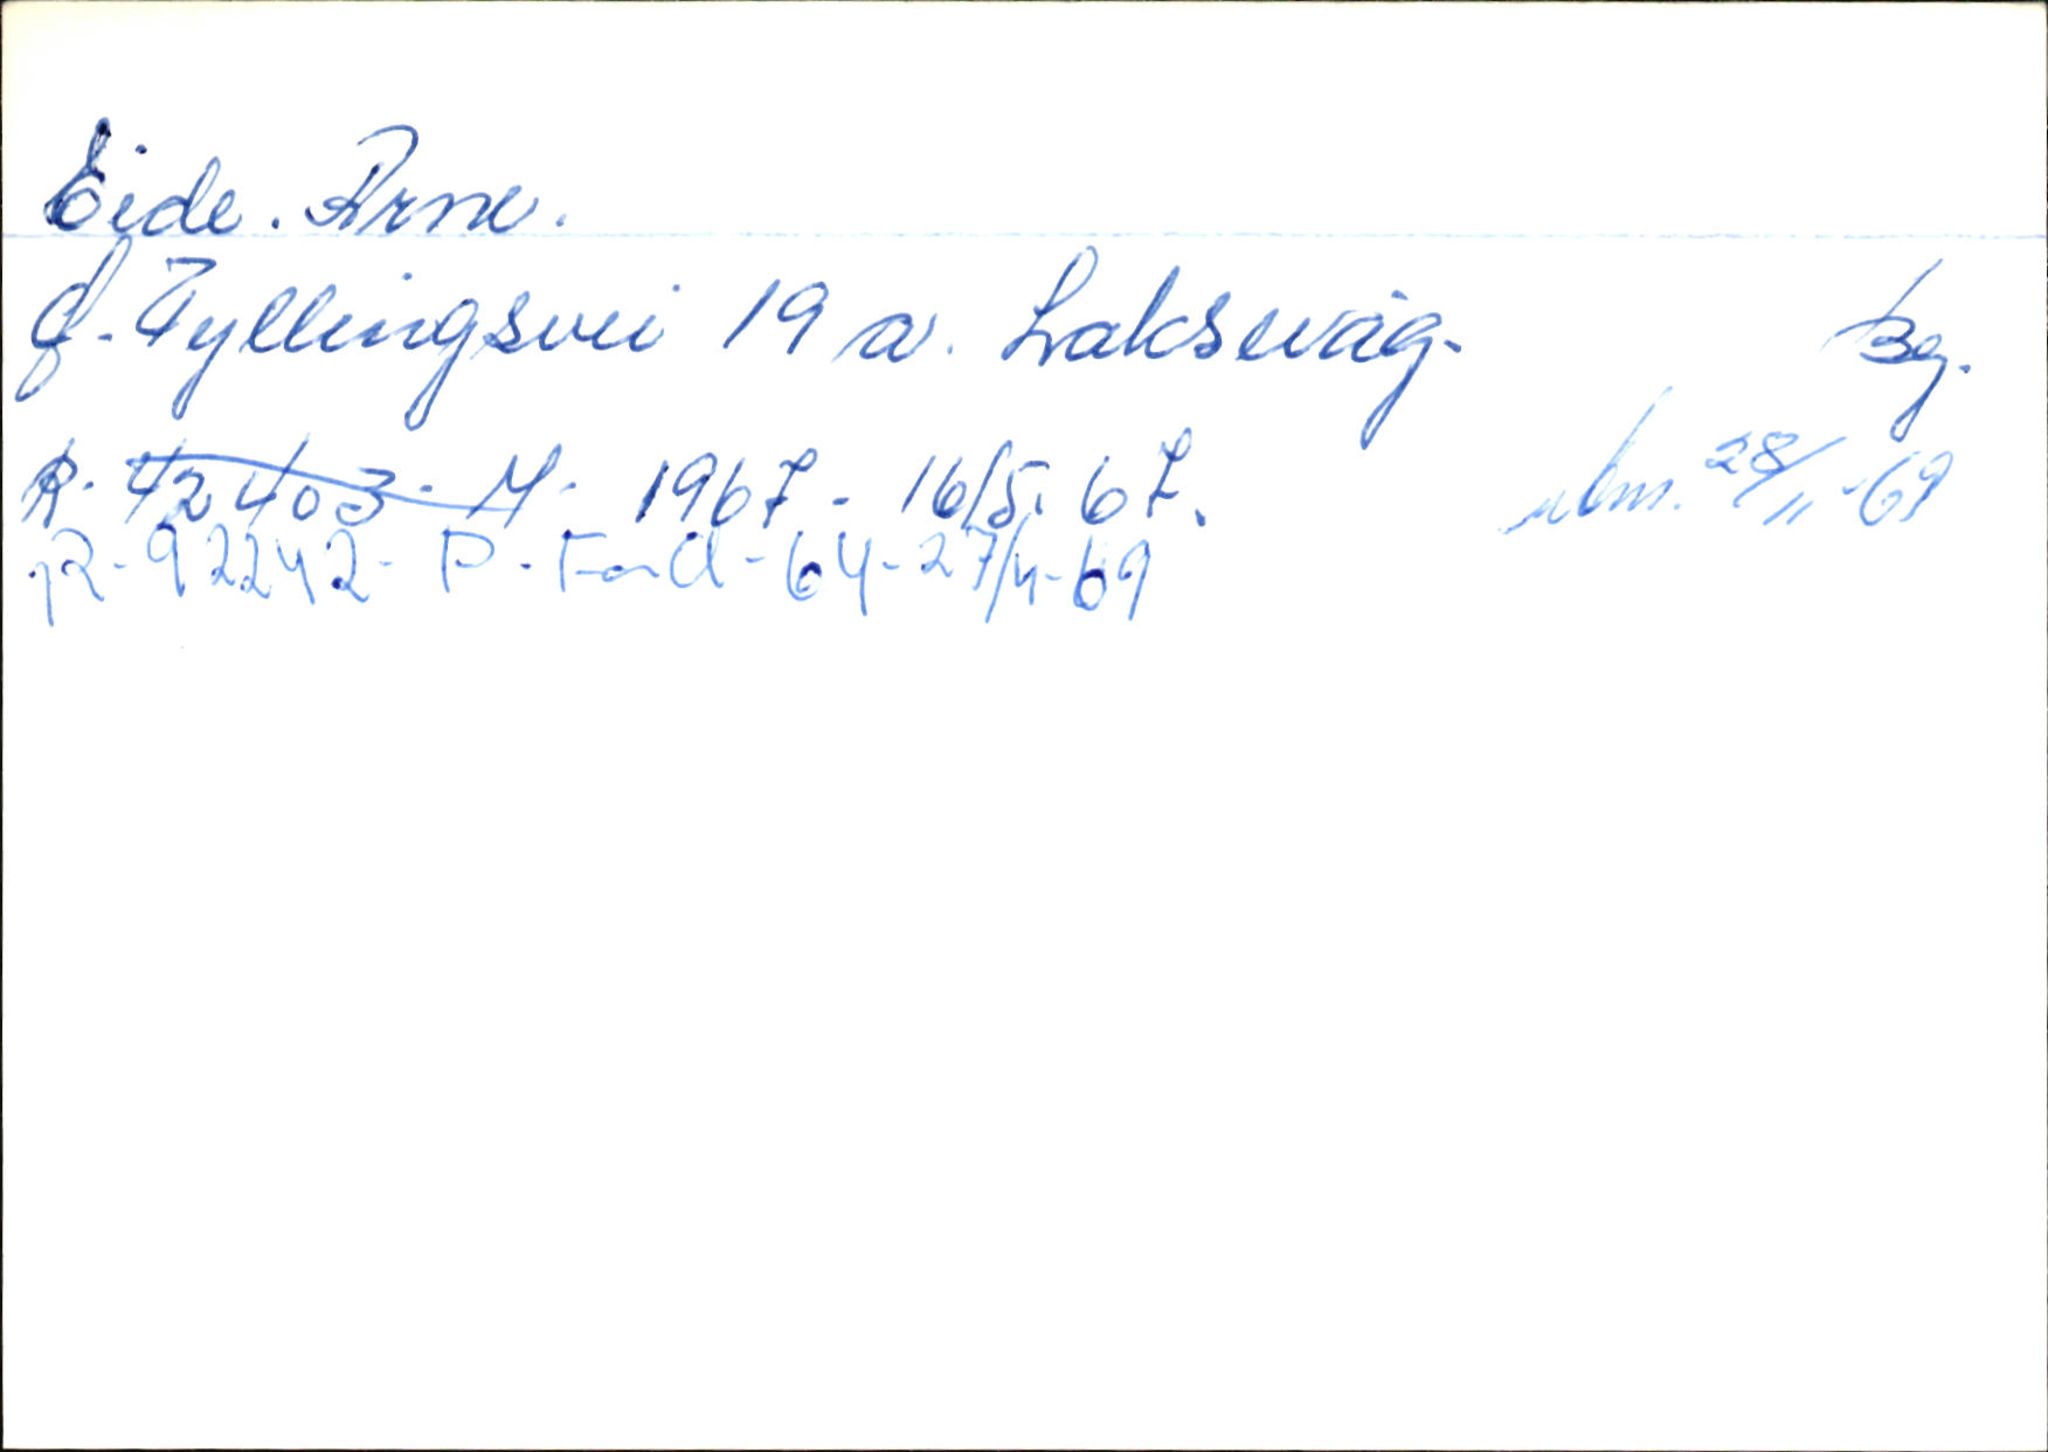 Eide. Arne.
J. Fyllingsvei 19 a. Laksevåg. Bg.
R. 42403. M. 1967 - 16/5. 67.
28/11-69
R-92242- P. Ford-64-27/4-69